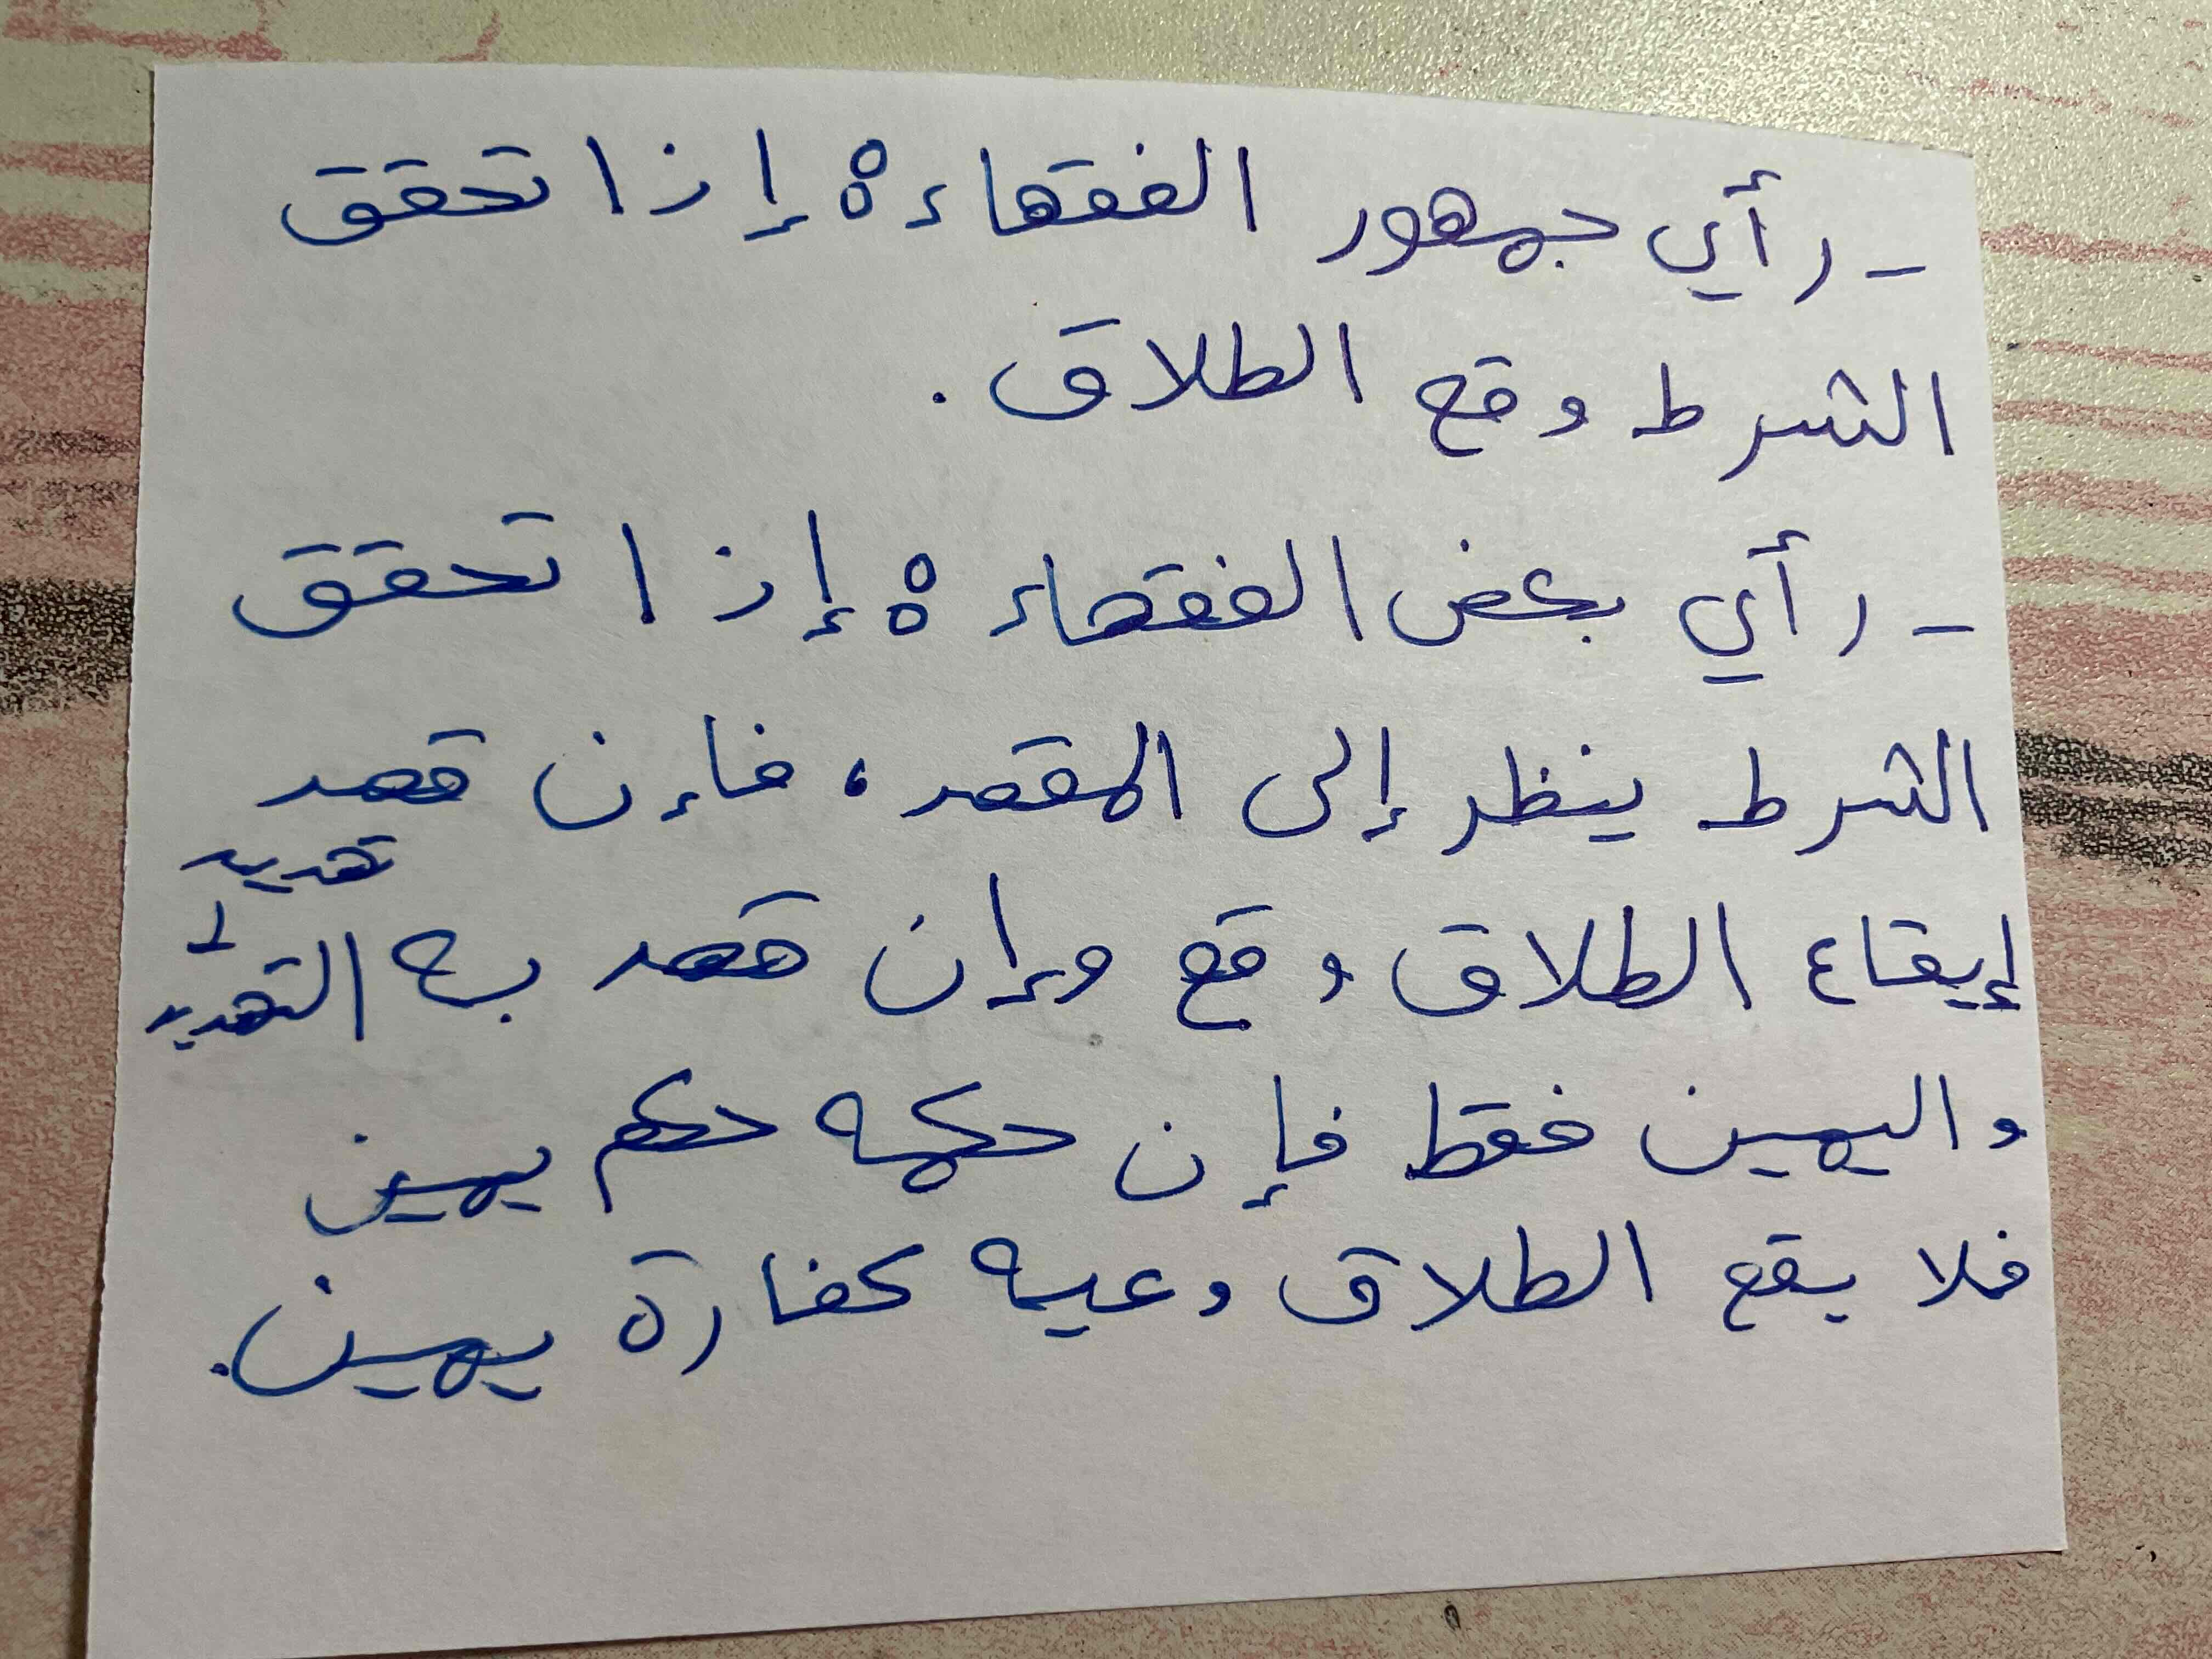 - رأي جمهور الفقهاء : إذا تحقق
الشرط وقع الطلاق .
- رأي بعض الفقهاء : إذا تحقق
الشرط ينظر إلى المقصد ، فإن قصد
تهديد
إيقاع الطلاق وقع وإن قصد به التهديد
واليمين فقط فإن حكمه حكم يمين
فلا يقع الطلاق وعيه كفارة يمين .